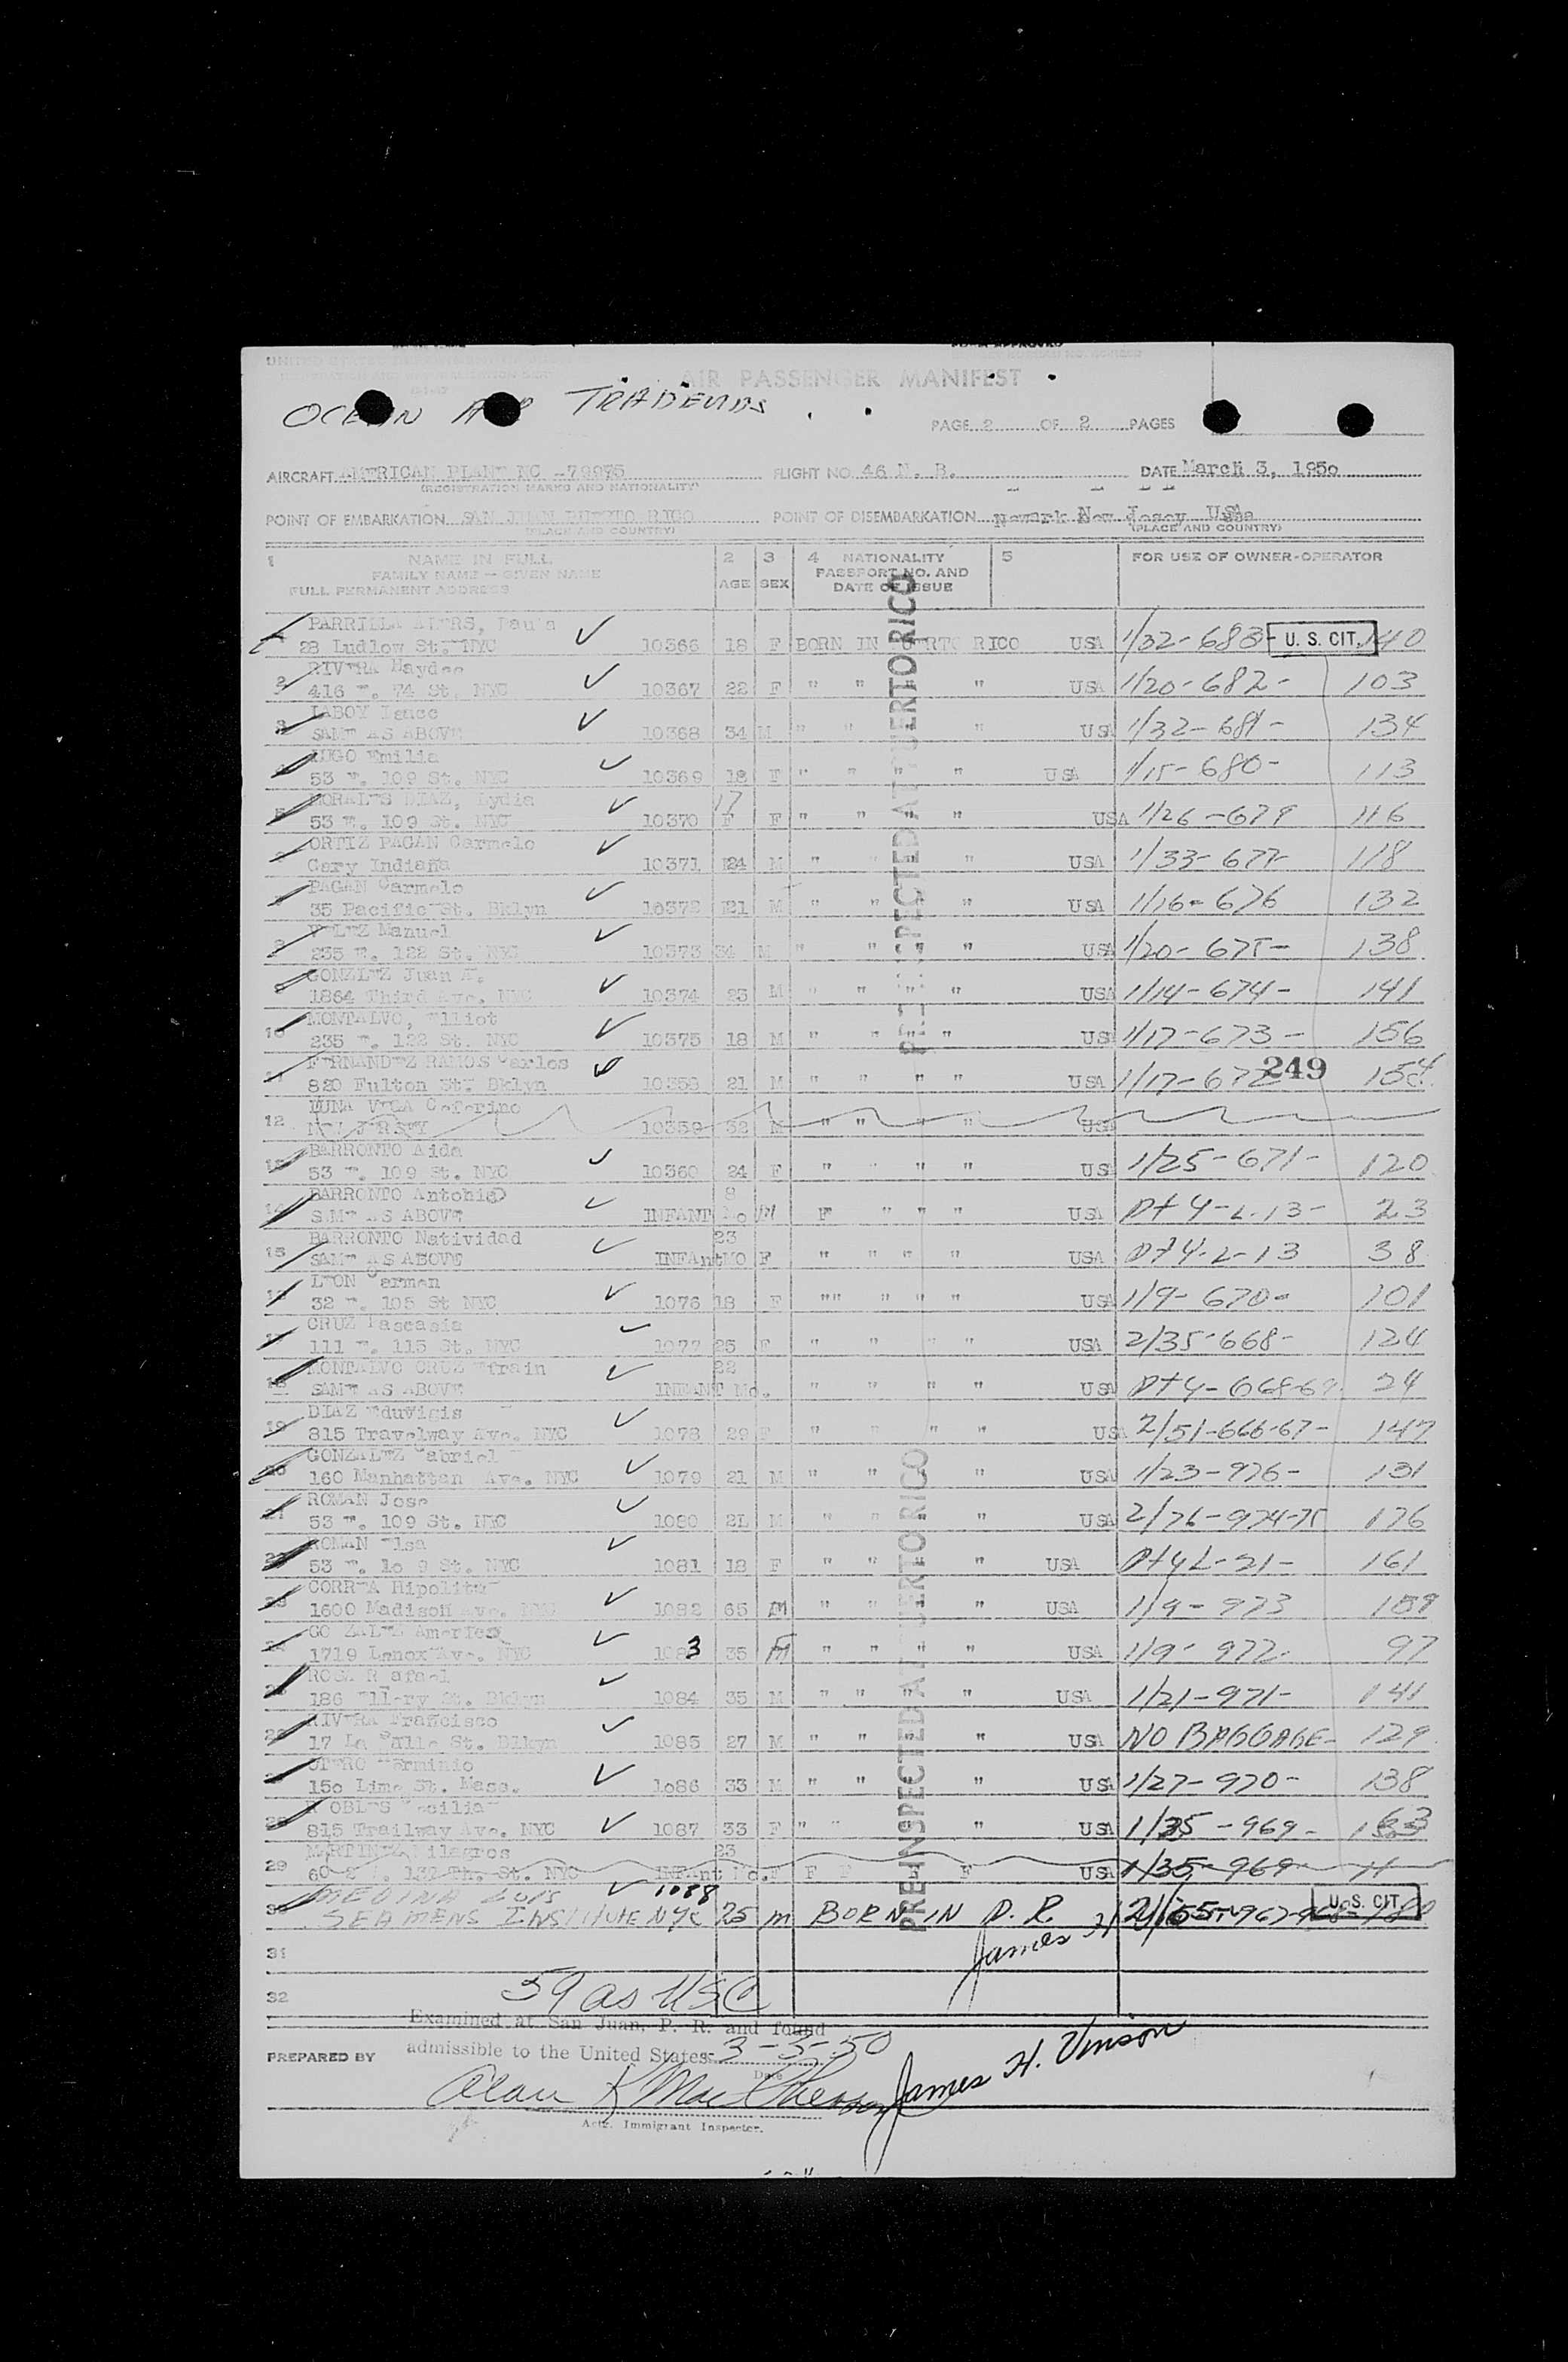 AIR PASSENGER MANIFEST
OCEAN AIR TRADEWINDS
PAGE 2 OF 2 PAGES
AIRCRAFT AMERICAN PLANE NC -79975 FLIGHT NO. 46 N. B. DATE March 3, 1950
(REGISTRATION MARKS AND NATIONALITY)
POINT OF EMBARKATION SAN JUAN PUERTO RICO POINT OF DISEMBARKATION Newark New Jesey USA
(PLACE AND COUNTRY) (PLACE AND COUNTRY)
1 NAME IN FULL 2 3 4 NATIONALITY 5 FOR USE OF OWNER-OPERATOR
FAMILY NAME — GIVEN NAME AGE SEX PASSPORT NO. AND
FULL PERMANENT ADDRESS DATE OF ISSUE
PARRILLA
28 Ludlow St. NYC 10366 18 F BORN IN PUERTO RICO USA 1/32-683- U. S. CIT. 140
RIVERA Haydee
416 E. 74 St. NYC 10367 22 F " " " " USA 1/20-682- 103
LABOY
SAME AS ABOVE 10368 34 M " " " USA 1/32-681- 134
LUGO Emilia
53 E. 109 St. NYC 10369 18 F " " " " USA 1/15-680- 113
MORALES DIAZ, Lydia 17
53 E. 109 St. NYC 10370 F F " " " " USA 1/26-679 116
ORTIZ PAGAN Carmelo
Gary Indiana 10371 24 M " " " USA 1/33-677- 118
PAGAN Carmelo
35 Pacific St. Bklyn 10372 21 M " " " " USA 1/16-676 132
VELEZ Manuel
235 E. 122 St. NYC 10373 34 M " " " " USA 1/20-675- 138
GONZLEZ Juan A.
1864 Third Ave. NYC 10374 23 M " " " " USA 1/14-674- 141
MONTALVO, Elliot
235 E. 122 St. NYC 10375 18 M " " " " US 1/17-673- 156
FERNANDEZ RAMOS Carlos
820 Fulton St. Bklyn 10358 21 M " " " " USA 1/17-672 249 154
12 LUNA VEGA Ceferino
NEW JERSEY 10359 32 M " " " " USA
BARRONTO Aida
53 E. 109 St. NYC 10360 24 F " " " " US 1/25-671- 120
BARRONTO Antonio 8
SAME AS ABOVE INFANT Mo M F " " " USA 23
BARRONTO Natividad 23
SAME AS ABOVE INFAnt MO F " " " " USA 38
LEON Carmen
32 E. 105 St NYC 1076 18 F "" " " " USA 1/9-670- 101
CRUZ Pascasia
111 E. 115 St. NYC 1077 25 F " " " " USA 2/35-668- 124
MONTALVO CRUZ Efrain 22
SAME AS ABOVE INFANT Mo. " " " " USA 24
DIAZ Eduvigis
815 Travelway Ave. NYC 1078 29 F " " " " USA 2/51-666-67- 147
GONZALEZ Gabriel
160 Manhattan Ave. NYC 1079 21 M " " " USA 1/23-976- 131
ROMAN Jose
53 E. 109 St. NYC 1080 2L M " " " " USA 2/76-974-75 176
ROMAN Elsa
53 E. 1o 9 St. NYC 1081 18 F " " " USA 161
CORREA Hipolito
1600 Madison Ave. NYC 1082 65 M " " " " USA 1/9-973 159
America
1719 Lenox Ave. NYC 1083 35 F " " " " USA 1/9-972- 97
ROSA Rafael
186 Ellery St. Bklyn 1084 35 M " " " " USA 1/21-971- 141
RIVERA Francisco
17 La Salle St. Blkyn 1085 27 M " " " " USA NO BAGGAGE- 129
OTERO Herminio
15o Lime St. Mass. 1o86 33 M " " " USA 1/27-970- 138
ROBLES Cecilia
815 Trailway Ave. NYC 1087 33 F " " " USA 1/35-969-
29 MARTINEZ Milagros 23
INFAnt Mo. F F F F F USA 1/35-969- 11
MEDINA LUIS 1088
30 SEAMENS INSTITUTE NYC 25 M BORN IN P. R. U. S. CIT.
31
32
59 as USC
Examined at San Juan, P. R. and found
admissible to the United States 3-3-50
Date
PREPARED BY
Alan K MacPherson James H. Vinson
Actg. Immigrant Inspector.
PREINSPECTED AT PUERTO RICO
PREINSPECTED AT PUERTO RICO